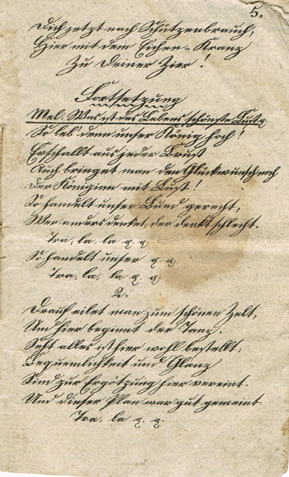 5.
Dich jetzt nach Schützenbrauch,
Hier mit dem Eichen-Kranz
Zu Deiner Zier!
Fortsetzung
Mel. Was ist des Lebens schönste Lust
So leb' denn unser König hoch!
Erschallt aus jeder Brust
Auch bringet man den Glückwunsch noch
Der Königinn mit Lust!
So handelt unser Bund gerecht,
Wer anders denket, der denkt schlecht.
Tra, la, la q. q.
So handelt unser q. q.
Tra, la, la q. q.
2.
Drauf eilet man zum schönen Zelt,
Um hier beginnt der Tanz.
Seht alles ist hier wohl bestellt;
Bequemlichkeit und Glanz
Sind zur Ergötzung hier vereint.
Und dieser Plan war gut gemeint
Tra, la q. q.